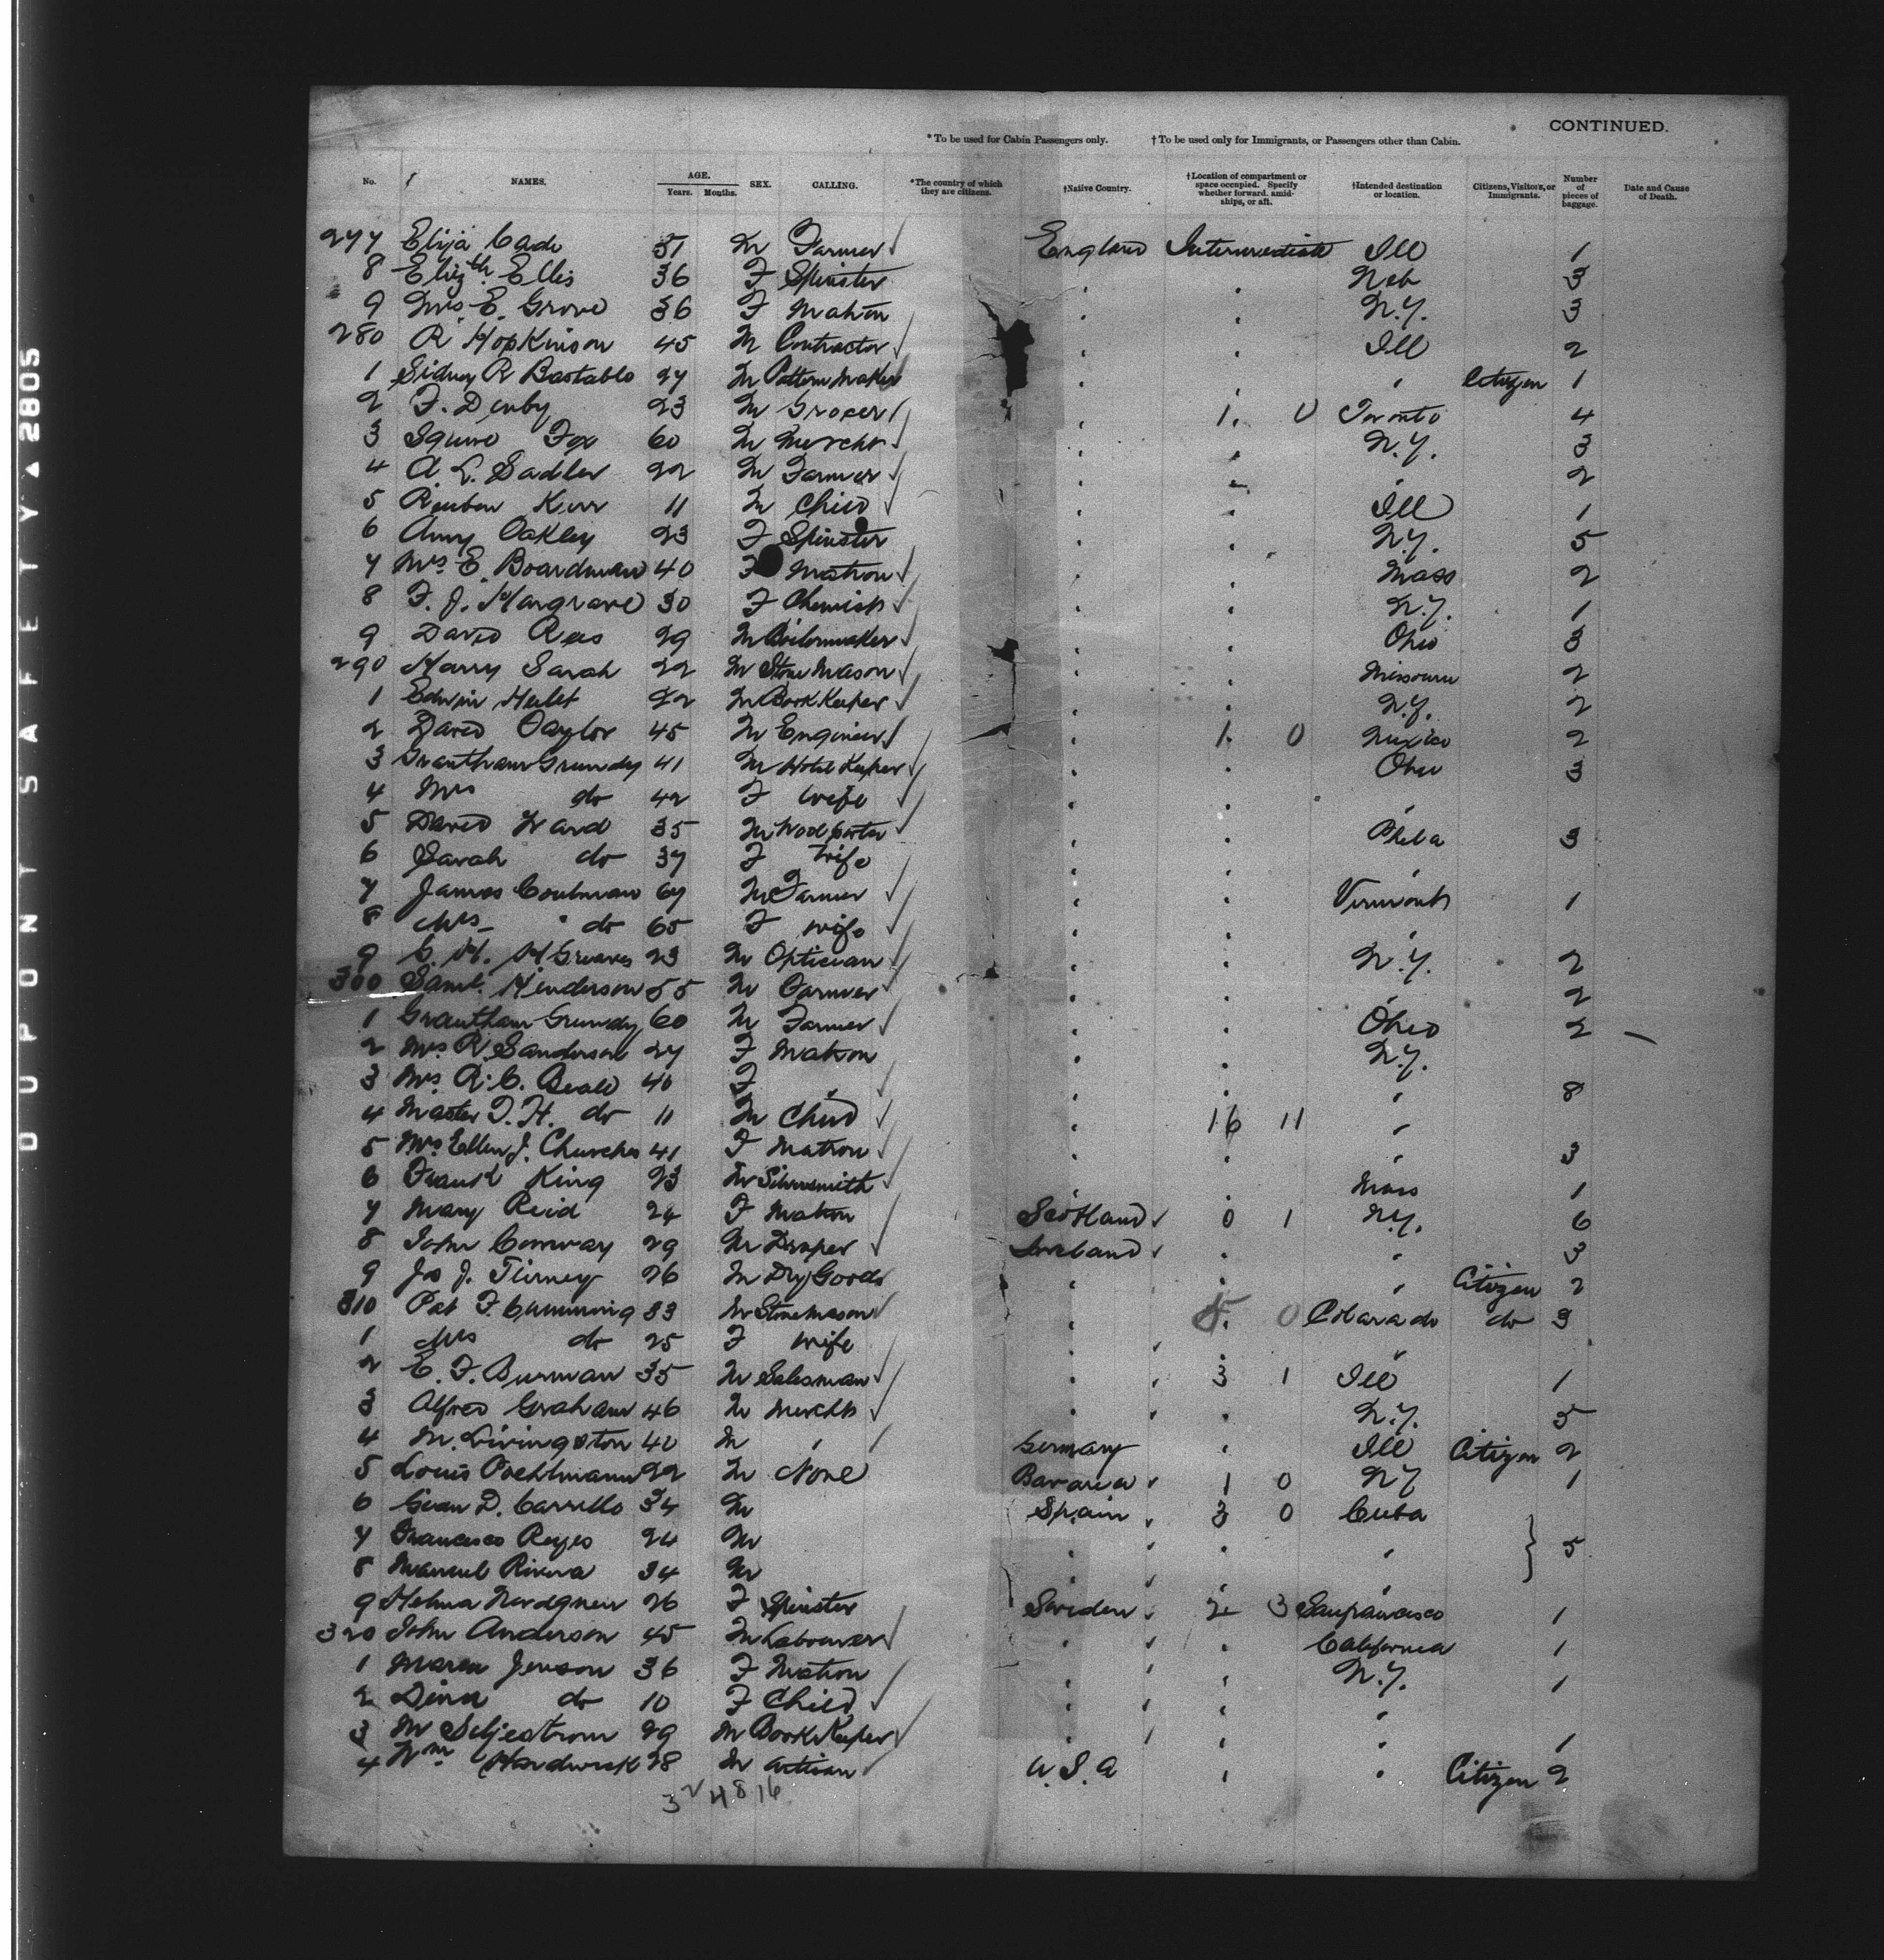 DUPONT SAFETY ▲ 2805
CONTINUED.
* To be used for Cabin Passengers only. † To be used only for Immigrants, or Passengers other than Cabin.
No. NAMES. AGE. Years. Months. SEX. CALLING. *The country of which they are citizens. †Native Country. †Location of compartment or space occupied. Specify whether forward, amidships, or aft. †Intended destination or location. Citizens, Visitors, or Immigrants. Number of pieces of baggage. Date and Cause of Death.
277 Elija Cade 51 M Farmer England Intermediate Ill 1
8 Elizth. Ellis 36 F Spinster " " Neb 3
9 Mrs. E. Grove 36 F Matron " " N.Y. 3
280 R Hopkinson 45 M Contractor " " Ill 2
1 Sidney R Bastable 27 M Pattern Maker " " " Citizen 1
2 F. Denby 23 M Grocer " 1. 0 Toronto 4
3 Squire Fox 60 M Mercht " " N.Y. 3
4 A. L. Sadler 22 M Farmer " " " 2
5 Reuben Kerr 11 M Child " " Ill 1
6 Amy Oakley 23 F Spinster " " N.Y. 5
7 Mrs. E. Boardman 40 F Matron " " Mass 2
8 F. J. Hargrave 30 F Chemist " " N.Y. 1
9 David Rees 29 M Boilermaker " " Ohio 3
290 Harry Sarah 22 M Stone Mason " " Missouri 2
1 Edwin 22 M Book Keeper " " N.Y. 2
2 David Taylor 45 M Engineer " 1. 0 Mexico 2
3 Grantham Grundy 41 M Hotel Keeper " " Ohio 3
4 Mrs do 42 F Wife " " "
5 David Ward 35 M " " Phila 3
6 Sarah do 37 F Wife " " "
7 James 67 M Farmer " " Vermont 1
8 Mrs " do 65 F Wife " " "
9 G. H. 23 M Optician " " N.Y. 2
300 Saml. Henderson 55 M Farmer " " " 2
1 Grantham Grundy 60 M Farmer " " Ohio 2
2 Mrs. R. Sanderson 27 F Matron " " N.Y.
3 Mrs. R. C. Beale 40 F " " " " 8
4 Master T. H. do 11 M Child " 16 11 "
5 Mrs. Ellen J. Churcher 41 F Matron " " " 3
6 Frank King 23 M Silversmith " " Mass 1
7 Mary Reid 24 F Matron Scotland 0 1 N.Y. 6
8 John Conway 29 M Draper Ireland " " 3
9 Js J. Tierney 26 M Dry Goods " " " Citizen 2
310 Pat F. Cumming 33 M Stone Mason " 5. 0 Colarado do 3
1 Mrs do 25 F Wife " " "
2 E. F. Burman 35 M Salesman " 3 1 Ill 1
3 Alfred Graham 46 M Mercht " " N.Y. 5
4 M. Livingston 40 M " Germany " Ill Citizen 2
5 Louis Poehlmann 22 M None Bavaria 1 0 N.Y 1
6 D. Carrillo 34 M Spain 3 0 Cuba
7 Francesco Reyes 24 M " " " } 5
8 Manuel Rivera 34 M " " "
9 Helma Nordgren 26 F Spinster Sweden 2 3 Sanfrancisco 1
320 John Anderson 45 M Labourer " " California 1
1 Maria Jenson 36 F Matron " " N.Y. 1
2 Dina do 10 F Child " " "
3 M Seljestrom 29 M Book Keeper " " " 1
4 Wm Hardwick 28 M Artisan U.S.A " " Citizen 2